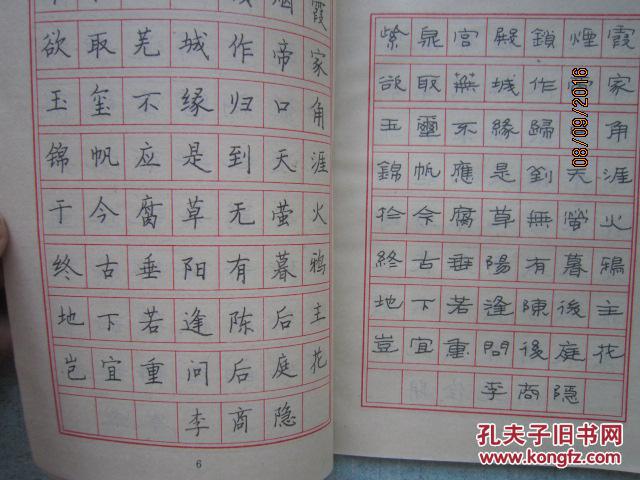 欲取芜城作帝家
玉玺不缘归日角
锦帆应是到天涯
于今腐草无萤火
终古垂阳有暮鸦
地下若逢陈后主
岂宜重问后庭花
李商隐
6
紫泉宫殿鎖煙霞
欲取蕪城作帝家
玉璽不緣歸 角
錦帆應是到天涯
於今腐草無螢火
終古垂陽有暮鴉
地下若逢陳後主
豈宜重問後庭花
李商隐
08/09/2016
孔夫子旧书网
www.kongfz.com